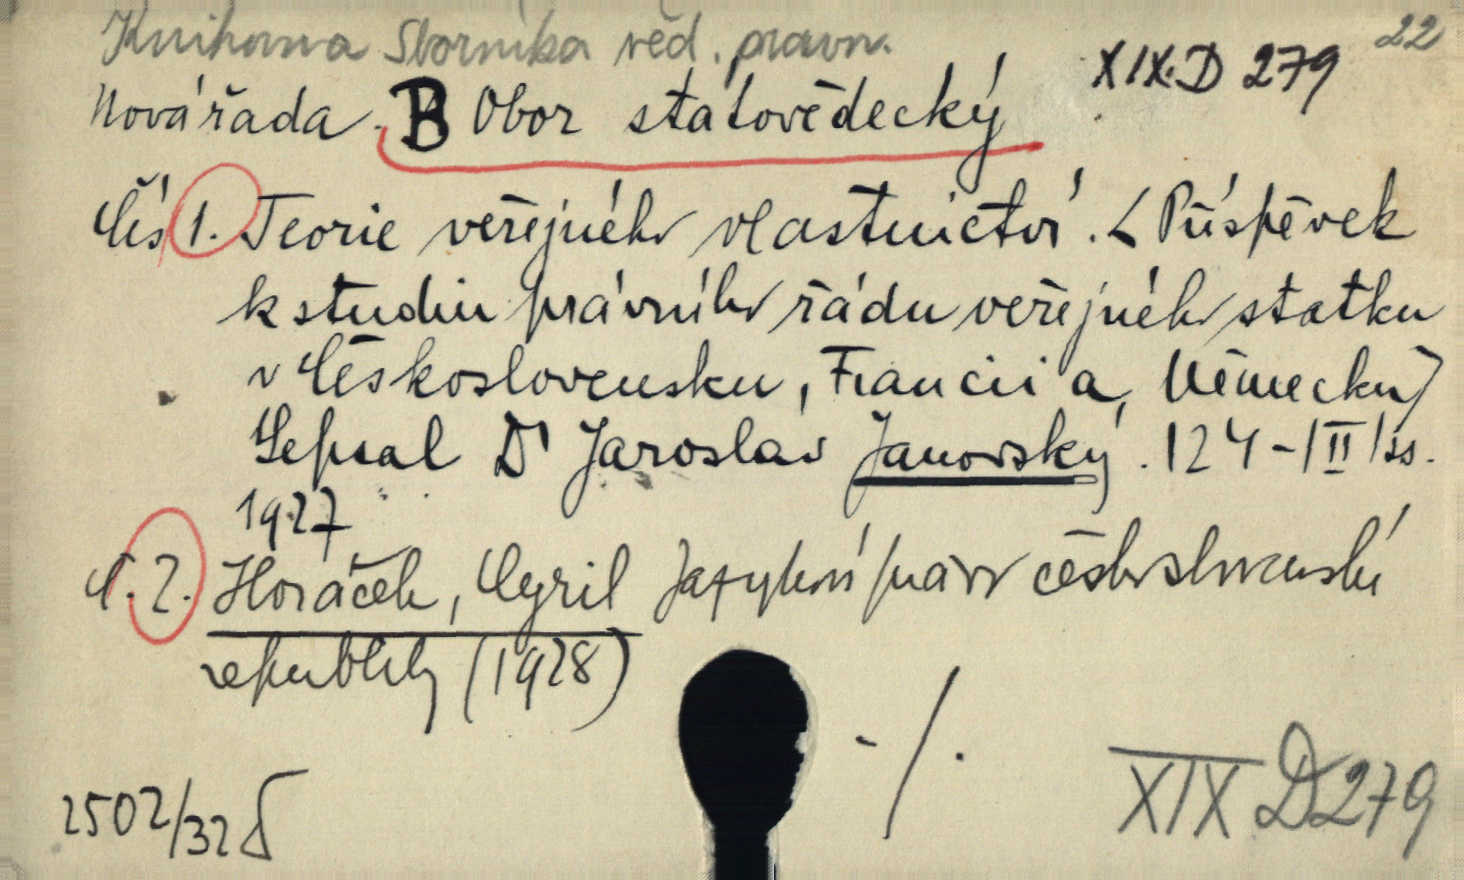 Knihovna Sborníka věd. právn. 22
Nová řada. B Obor státovědecký XIX.D 279
Čís 1. Teorie veřejného vlastnictví. (Příspěvek
k studiu právního řádu veřejného statku
v Československu, Francii a Německu)
Sepsal Dr Jaroslav Janovský. 124-/II/ ss.
1927
Č. 2. Horáček, Cyril Jazykové právo československé
republiky (1928)
-/.
2502/32 XIX D 279